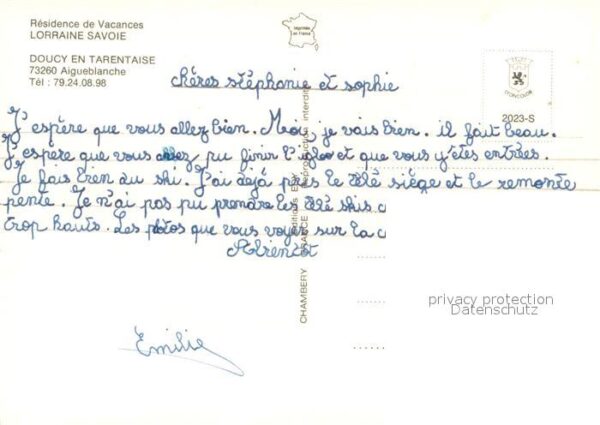 Résidence de Vacances
LORRAINE SAVOIE
DOUCY EN TARENTAISE
73260 Aigueblanche
Tél : 79.24.08.98
Imprimée en France
2023-S
chères stéphanie et sophie
J'espère que vous allez bien. Moi, je vais bien. il fait beau.
J'espère que vous allez pu finir l'igloo et que vous y êtes entrées.
Je fais bien du ski. J'ai déjà pris le télé siège et le remonte
pente. Je n'ai pas pu prendre les télé skis c
trop hauts. Les photos que vous voyez sur la c
Emilie
CHAMBERY
FRANCE
Editions
reproduction interdite
privacy protection
Datenschutz